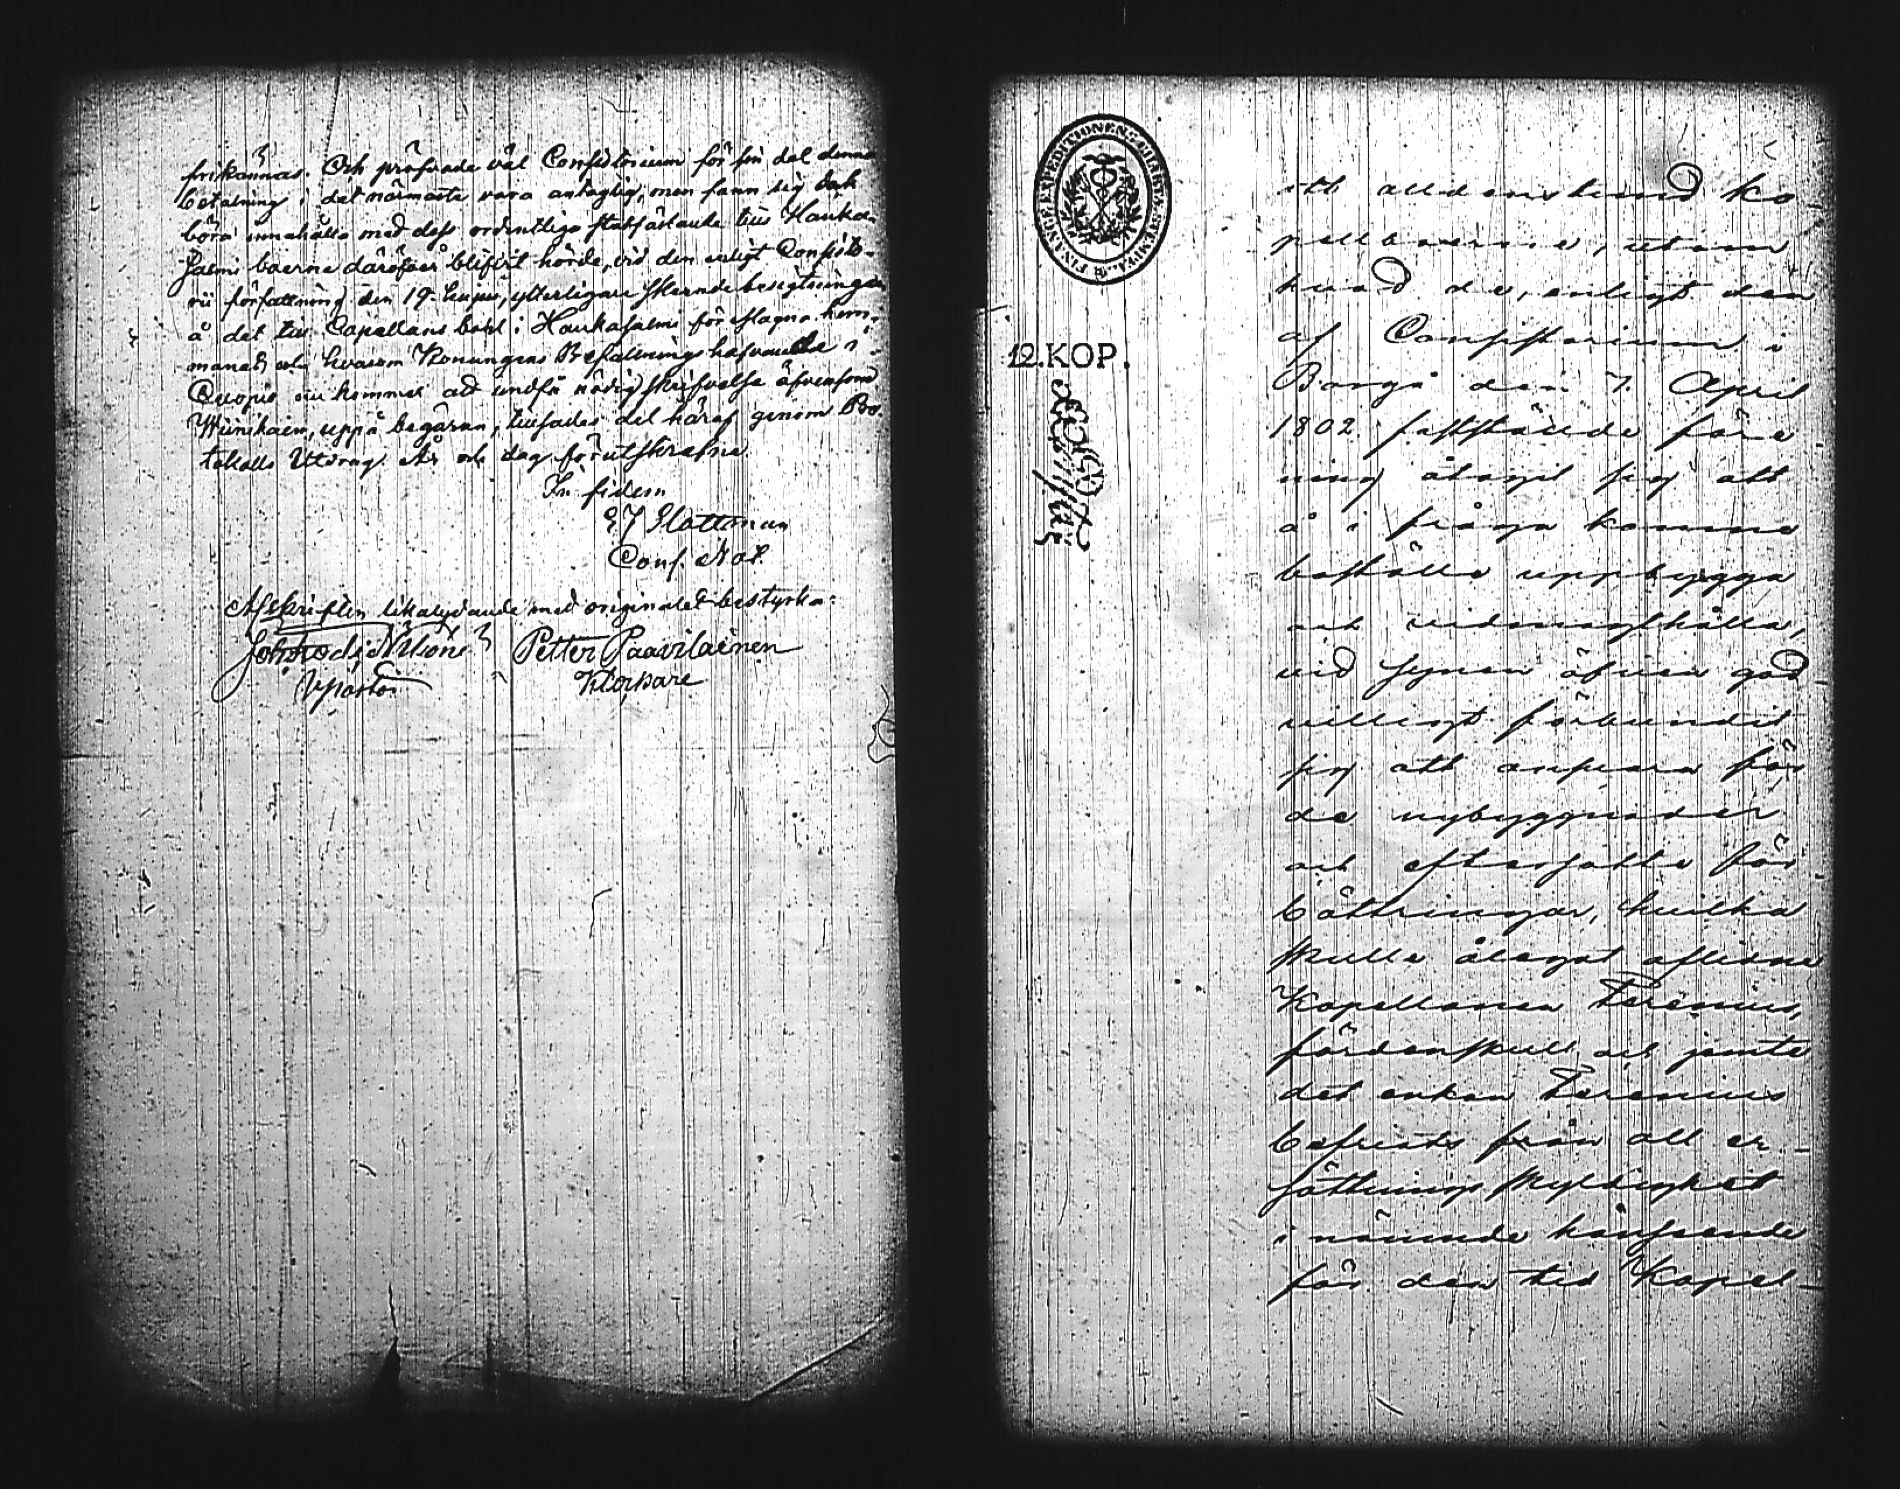 frikännas. Och pröfvade väl Consistorium för sin del denna
betalning i det närmaste vara antaglig, men fann sig dock
böra innehålla med dess ordentliga fastställande tills Hanka-
salmi boerne däröfver blifvit hörde, vid den enligt Consisto-
rii författning den 19. hujus, ytterligare skeende besigtningen
å det till Capellans bohl i Hankasalmi för slagna hem-
manet och hvarom Konungens Befallningshafvande i
Cuopio nu kommer att undfå nödig skrifvelse äfvensom
Wiinikain, uppå begäran, tillsades del häraf genom Pro-
tokolls Utdrag. År och dag förutskrefne
In fidem
E J Alattman
Cons. Not.
Afskriften likalydande med originalet bestyrka:
Joh
Vpastor
Petter Paavilainen
Klockare
FINANCE EXPEDITIONEN
12.KOP.
att alldenstund ka
pellboerne, utom
hvad de, enligt den
af Consistorium i
Borgå den 7. April
1802 fastställde före
ning åtagit sig att
å i fråga komne
boställe uppbygga
och vidmagthålla,
vid synen äfven god
villigt förbundit
sig att ansvara för
de nybyggnader
och eftersatte för
bättringar, hvilka
skulle ålegat aflidne
Kapellanen Ferenius,
fördenskull och jemte
det enkan Ferenius
befriats från all er-
sättnings skyldighet
i nämnde hänseende
för den tid Kapel-